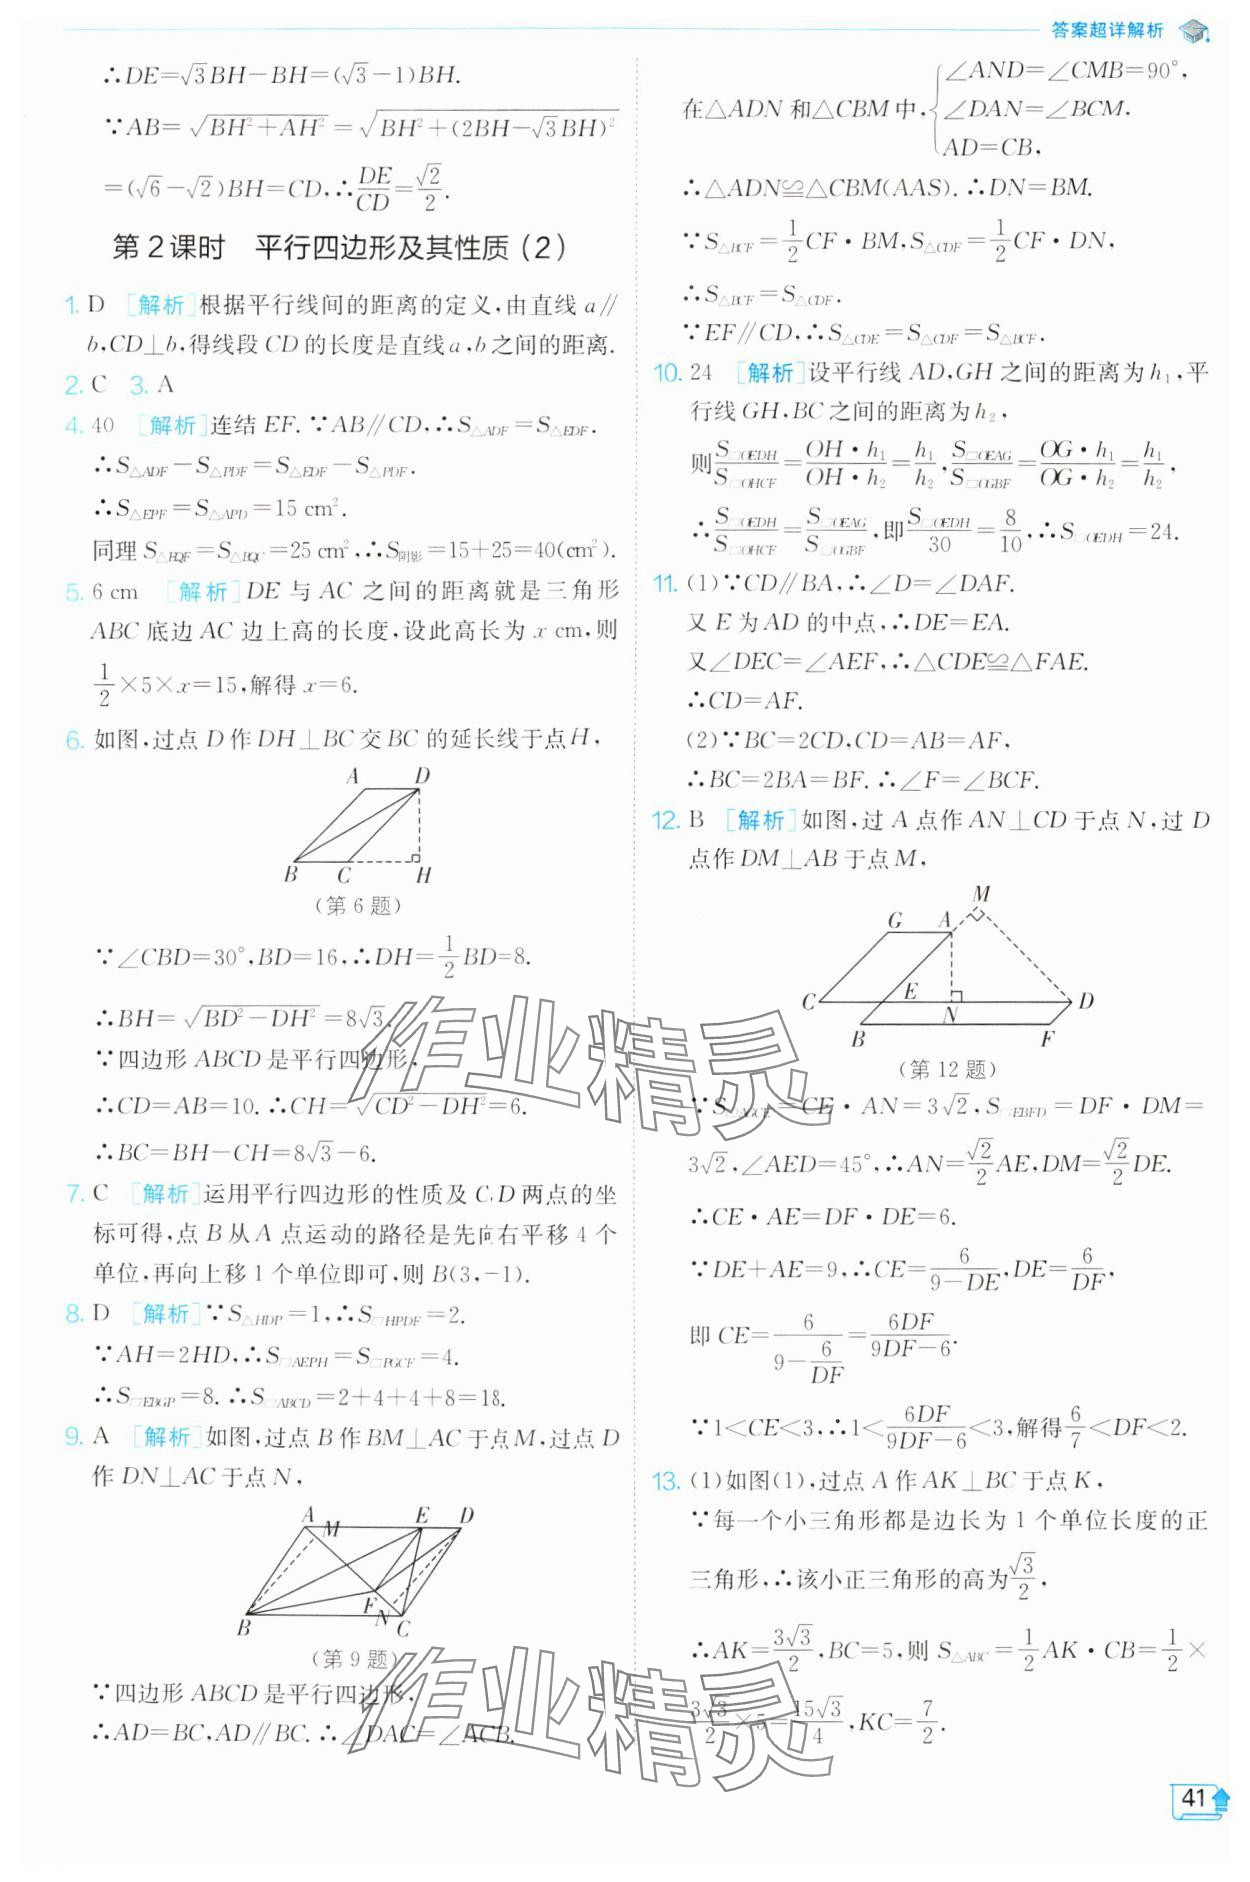 答案超详解析
∴DE=√3BH−BH=(√3−1)BH.
∵AB=√(BH²+AH²)=√(BH²+(2BH−√3BH)²)
=(√6−√2)BH=CD,∴DE/CD=√2/2.
第2课时 平行四边形及其性质(2)
1. D [解析]根据平行线间的距离的定义,由直线a∥
b,CD⊥b,得线段CD的长度是直线a,b之间的距离.
2. C 3. A
4. 40 [解析]连结EF.∵AB∥CD,∴S△ADF=S△EDF.
∴S△ADF−S△PDF=S△EDF−S△PDF.
∴S△EPF=S△APD=15 cm².
同理S△EQF=S△BQC=25 cm²,∴S阴影=15+25=40(cm²).
5. 6 cm [解析]DE与AC之间的距离就是三角形
ABC底边AC边上高的长度,设此高长为x cm,则
1/2×5×x=15,解得x=6.
6. 如图,过点D作DH⊥BC交BC的延长线于点H,
A D
B C H
(第6题)
∵∠CBD=30°,BD=16,∴DH=1/2BD=8.
∴BH=√(BD²−DH²)=8√3.
∵四边形ABCD是平行四边形,
∴CD=AB=10.∴CH=√(CD²−DH²)=6.
∴BC=BH−CH=8√3−6.
7. C [解析]运用平行四边形的性质及C,D两点的坐
标可得,点B从A点运动的路径是先向右平移4个
单位,再向上移1个单位即可,则B(3,−1).
8. D [解析]∵S△HDP=1,∴S□HPDF=2.
∵AH=2HD,∴S□AEPH=S□PGCF=4.
∴S□EBGP=8.∴S□ABCD=2+4+4+8=18.
9. A [解析]如图,过点B作BM⊥AC于点M,过点D
作DN⊥AC于点N,
A M E D
B F N C
(第9题)
∵四边形ABCD是平行四边形,
∴AD=BC,AD∥BC.∴∠DAC=∠ACB.
在△ADN和△CBM中,{∠AND=∠CMB=90°,
∠DAN=∠BCM,
AD=CB,
∴△ADN≌△CBM(AAS).∴DN=BM.
∵S△BCF=1/2CF·BM,S△CDF=1/2CF·DN,
∴S△BCF=S△CDF.
∵EF∥CD,∴S△CDE=S△CDF=S△BCF.
10. 24 [解析]设平行线AD,GH之间的距离为h₁,平
行线GH,BC之间的距离为h₂,
则S□OEDH/S□OHCF=OH·h₁/OH·h₂=h₁/h₂,S□OEAG/S□OGBF=OG·h₁/OG·h₂=h₁/h₂,
∴S□OEDH/S□OHCF=S□OEAG/S□OGBF,即S□OEDH/30=8/10,∴S□OEDH=24.
11. (1)∵CD∥BA,∴∠D=∠DAF.
又E为AD的中点,∴DE=EA.
又∠DEC=∠AEF,∴△CDE≌△FAE.
∴CD=AF.
(2)∵BC=2CD,CD=AB=AF,
∴BC=2BA=BF.∴∠F=∠BCF.
12. B [解析]如图,过A点作AN⊥CD于点N,过D
点作DM⊥AB于点M,
M
G A
C E N D
B F
(第12题)
∵S□AGCE=CE·AN=3√2,S□EBFD=DF·DM=
3√2,∠AED=45°,∴AN=√2/2AE,DM=√2/2DE.
∴CE·AE=DF·DE=6.
∵DE+AE=9,∴CE=6/(9−DE),DE=6/DF,
即CE=6/(9−6/DF)=6DF/(9DF−6).
∵1<CE<3,∴1<6DF/(9DF−6)<3,解得6/7<DF<2.
13. (1)如图(1),过点A作AK⊥BC于点K,
∵每一个小三角形都是边长为1个单位长度的正
三角形,∴该小正三角形的高为√3/2,
∴AK=3√3/2,BC=5,则S△ABC=1/2AK·CB=1/2×
3√3/2×5=15√3/4,KC=7/2.
作业精灵
作业精灵
41